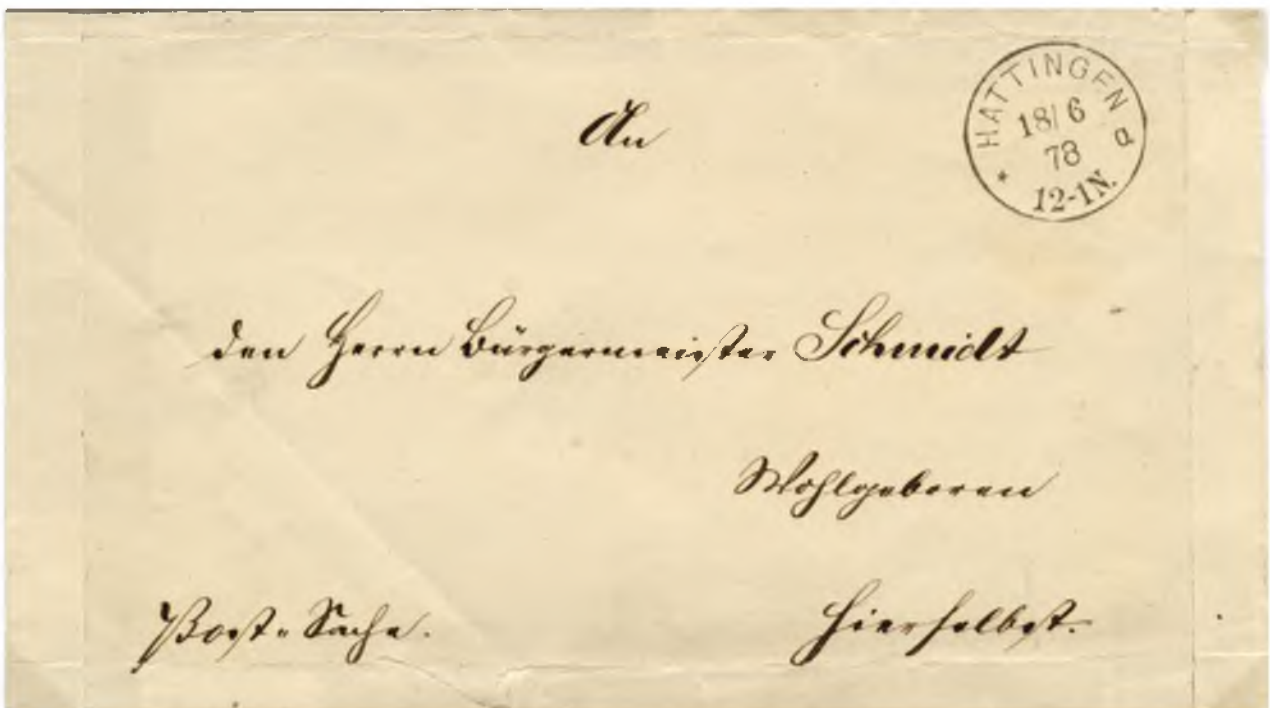 HATTINGEN a
18/6
78
12-1N.
An
den Herrn Bürgermeister Schmidt
Wohlgeboren
Post-Sache.
hierselbst.